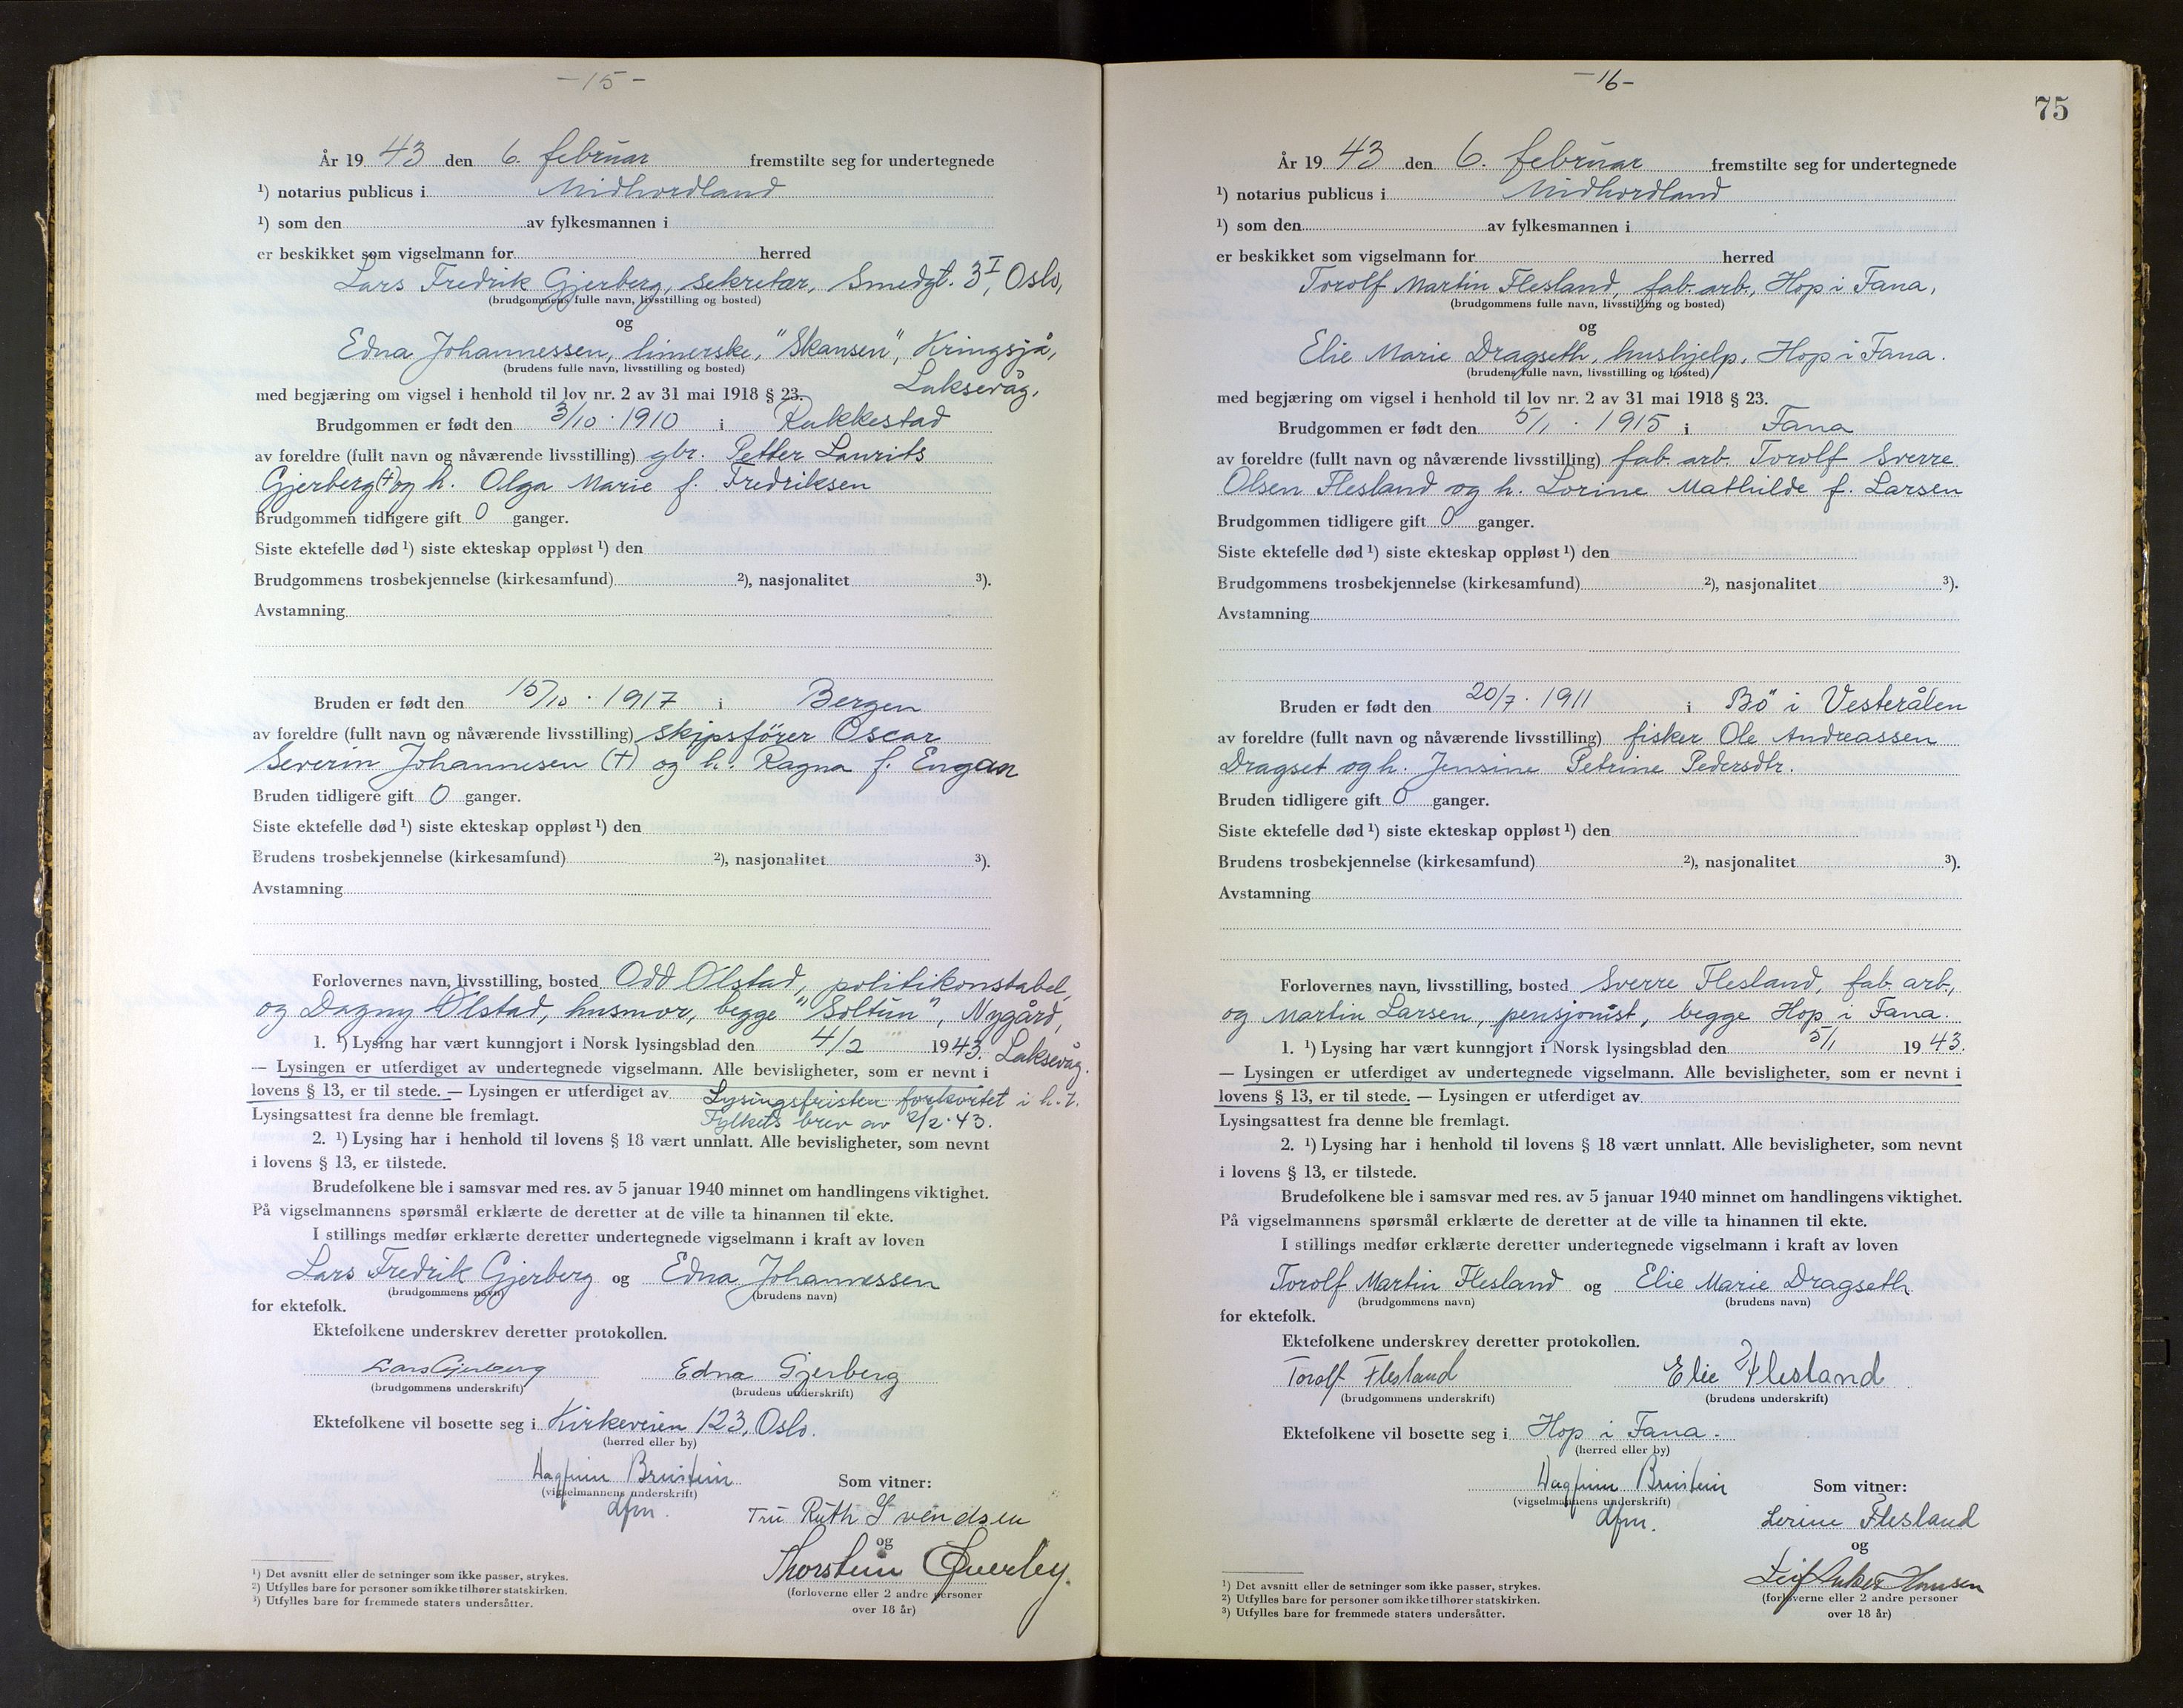 - 15 -
År 19 43 den 6. februar fremstilte seg for undertegnede
¹) notarius publicus i Midhordland
¹) som den av fylkesmannen i
er beskikket som vigselmann for herred
Lars Fredrik Gjerberg, sekretær, Smedgt. 3 I, Oslo,
(brudgommens fulle navn, livsstilling og bosted)
og
Edna Johannessen, limerske, "Skansen", Kringsjå,
(brudens fulle navn, livsstilling og bosted)
Laksevåg,
med begjæring om vigsel i henhold til lov nr. 2 av 31 mai 1918 § 23.
Brudgommen er født den 3/10 . 1910 i Rakkestad
av foreldre (fullt navn og nåværende livsstilling) gbr. Petter Laurits
Gjerberg (†) og h. Olga Marie f. Fredriksen
Brudgommen tidligere gift 0 ganger.
Siste ektefelle død ¹) siste ekteskap oppløst ¹) den
Brudgommens trosbekjennelse (kirkesamfund) ²), nasjonalitet ³).
Avstamning
Bruden er født den 15/10 . 1917 i Bergen
av foreldre (fullt navn og nåværende livsstilling) skipsfører Oscar
Severin Johannesen (†) og h. Ragna f. Engan
Bruden tidligere gift 0 ganger.
Siste ektefelle død ¹) siste ekteskap oppløst ¹) den
Brudens trosbekjennelse (kirkesamfund) ²), nasjonalitet ³).
Avstamning
Forlovernes navn, livsstilling, bosted Odd Ølstad, politikonstabel,
og Dagny Ølstad, husmor, begge "Soltun", Nygård,
1. ¹) Lysing har vært kunngjort i Norsk lysingsblad den 4/2 1943. Laksevåg.
— Lysingen er utferdiget av undertegnede vigselmann. Alle bevisligheter, som er nevnt i
lovens § 13, er til stede. — Lysingen er utferdiget av Lysingsfristen forkortet i h. t.
Lysingsattest fra denne ble fremlagt. Fylkets brev av 2/2.43.
2. ¹) Lysing har i henhold til lovens § 18 vært unnlatt. Alle bevisligheter, som nevnt
i lovens § 13, er tilstede.
Brudefolkene ble i samsvar med res. av 5 januar 1940 minnet om handlingens viktighet.
På vigselmannens spørsmål erklærte de deretter at de ville ta hinannen til ekte.
I stillings medfør erklærte deretter undertegnede vigselmann i kraft av loven
Lars Fredrik Gjerberg og Edna Johannessen
(brudgommens navn) (brudens navn)
for ektefolk.
Ektefolkene underskrev deretter protokollen.
Lars Gjerberg Edna Gjerberg
(brudgommens underskrift) (brudens underskrift)
Ektefolkene vil bosette seg i Kirkeveien 123, Oslo.
(herred eller by)
Dagfinn Brustein
(vigselmannens underskrift)
dfm.
Som vitner:
Ruth Svendsen
og
Thorstein
(forloverne eller 2 andre personer
over 18 år)
¹) Det avsnitt eller de setninger som ikke passer, strykes.
²) Utfylles bare for personer som ikke tilhører statskirken.
³) Utfylles bare for fremmede staters undersåtter.
- 16 -
75
År 19 43 den 6. februar fremstilte seg for undertegnede
¹) notarius publicus i Midhordland
¹) som den av fylkesmannen i
er beskikket som vigselmann for herred
Torolf Martin Flesland, fab. arb., Hop i Fana,
(brudgommens fulle navn, livsstilling og bosted)
og
Elie Marie Dragseth, hushjelp, Hop i Fana.
(brudens fulle navn, livsstilling og bosted)
med begjæring om vigsel i henhold til lov nr. 2 av 31 mai 1918 § 23.
Brudgommen er født den 5/1 . 1915 i Fana
av foreldre (fullt navn og nåværende livsstilling) fab. arb. Torolf Sverre
Olsen Flesland og h. Lorine Mathilde f. Larsen
Brudgommen tidligere gift 0 ganger.
Siste ektefelle død ¹) siste ekteskap oppløst ¹) den
Brudgommens trosbekjennelse (kirkesamfund) ²), nasjonalitet ³).
Avstamning
Bruden er født den 20/7 . 1911 i Bö i Vesterålen
av foreldre (fullt navn og nåværende livsstilling) fisker Ole Andreassen
Dragset og h. Jensine Petrine Pedersdtr.
Bruden tidligere gift 0 ganger.
Siste ektefelle død ¹) siste ekteskap oppløst ¹) den
Brudens trosbekjennelse (kirkesamfund) ²), nasjonalitet ³).
Avstamning
Forlovernes navn, livsstilling, bosted Sverre Flesland, fab. arb.,
og Martin Larsen, pensjonist, begge Hop i Fana.
1. ¹) Lysing har vært kunngjort i Norsk lysingsblad den 5/1 19 43.
— Lysingen er utferdiget av undertegnede vigselmann. Alle bevisligheter, som er nevnt i
lovens § 13, er til stede. — Lysingen er utferdiget av
Lysingsattest fra denne ble fremlagt.
2. ¹) Lysing har i henhold til lovens § 18 vært unnlatt. Alle bevisligheter, som nevnt
i lovens § 13, er tilstede.
Brudefolkene ble i samsvar med res. av 5 januar 1940 minnet om handlingens viktighet.
På vigselmannens spørsmål erklærte de deretter at de ville ta hinannen til ekte.
I stillings medfør erklærte deretter undertegnede vigselmann i kraft av loven
Torolf Martin Flesland og Elie Marie Dragseth
(brudgommens navn) (brudens navn)
for ektefolk.
Ektefolkene underskrev deretter protokollen.
Torolf Flesland Elie Flesland
(brudgommens underskrift) (brudens underskrift)
Ektefolkene vil bosette seg i Hop i Fana.
(herred eller by)
Dagfinn Brustein
(vigselmannens underskrift)
dfm.
Som vitner:
Lorine Flesland
og
Leif Anker Hansen
(forloverne eller 2 andre personer
over 18 år)
¹) Det avsnitt eller de setninger som ikke passer, strykes.
²) Utfylles bare for personer som ikke tilhører statskirken.
³) Utfylles bare for fremmede staters undersåtter.